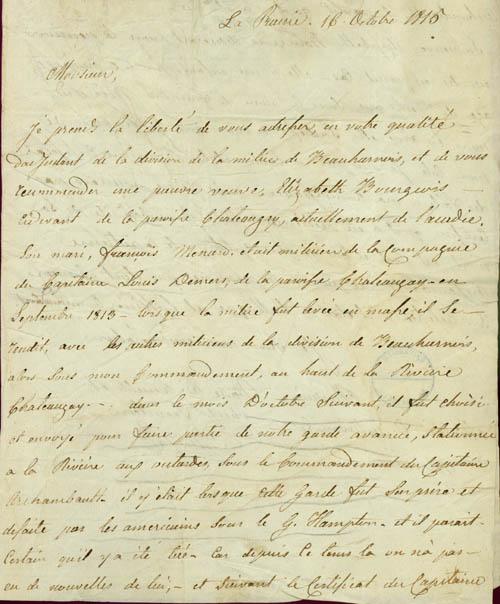 La Prairie. 16. Octobre 1815
Monsieur,
Je prends la liberté de vous adresser, en votre qualité
d'adjudant de la division de la milice de Beauharnois, et de vous
recommander une pauvre veuve, Elizabeth Bourgeois
cidevant de la paroisse Chateaugay, actuellement de l'acadie.
Son mari, françois Menard, était milicien de la Compagnie
du Capitaine Louis Demers, de la paroisse Chateaugay - en
Septembre 1813 - lorsque la milice fut levée en masse, il se
rendit, avec les autres miliciens de la division de Beauharnois,
alors sous mon Commandement, au haut de la Rivière
Chateaugay - dans le mois D'octobre Suivant, il fut choisi
et envoyé pour faire partie de notre garde avancée, Stationnée
a la Rivière aux outardes, sous le Commandement du Capitaine
Archambault - il y était lorsque cette Garde fut Surprise et
défaite par les americains sous le G. Hampton - et il parait
Certain qu'il y a été tué - Car depuis ce tems la on n'a pas
eu de nouvelles de lui, - et suivant le Certificat du Capitaine